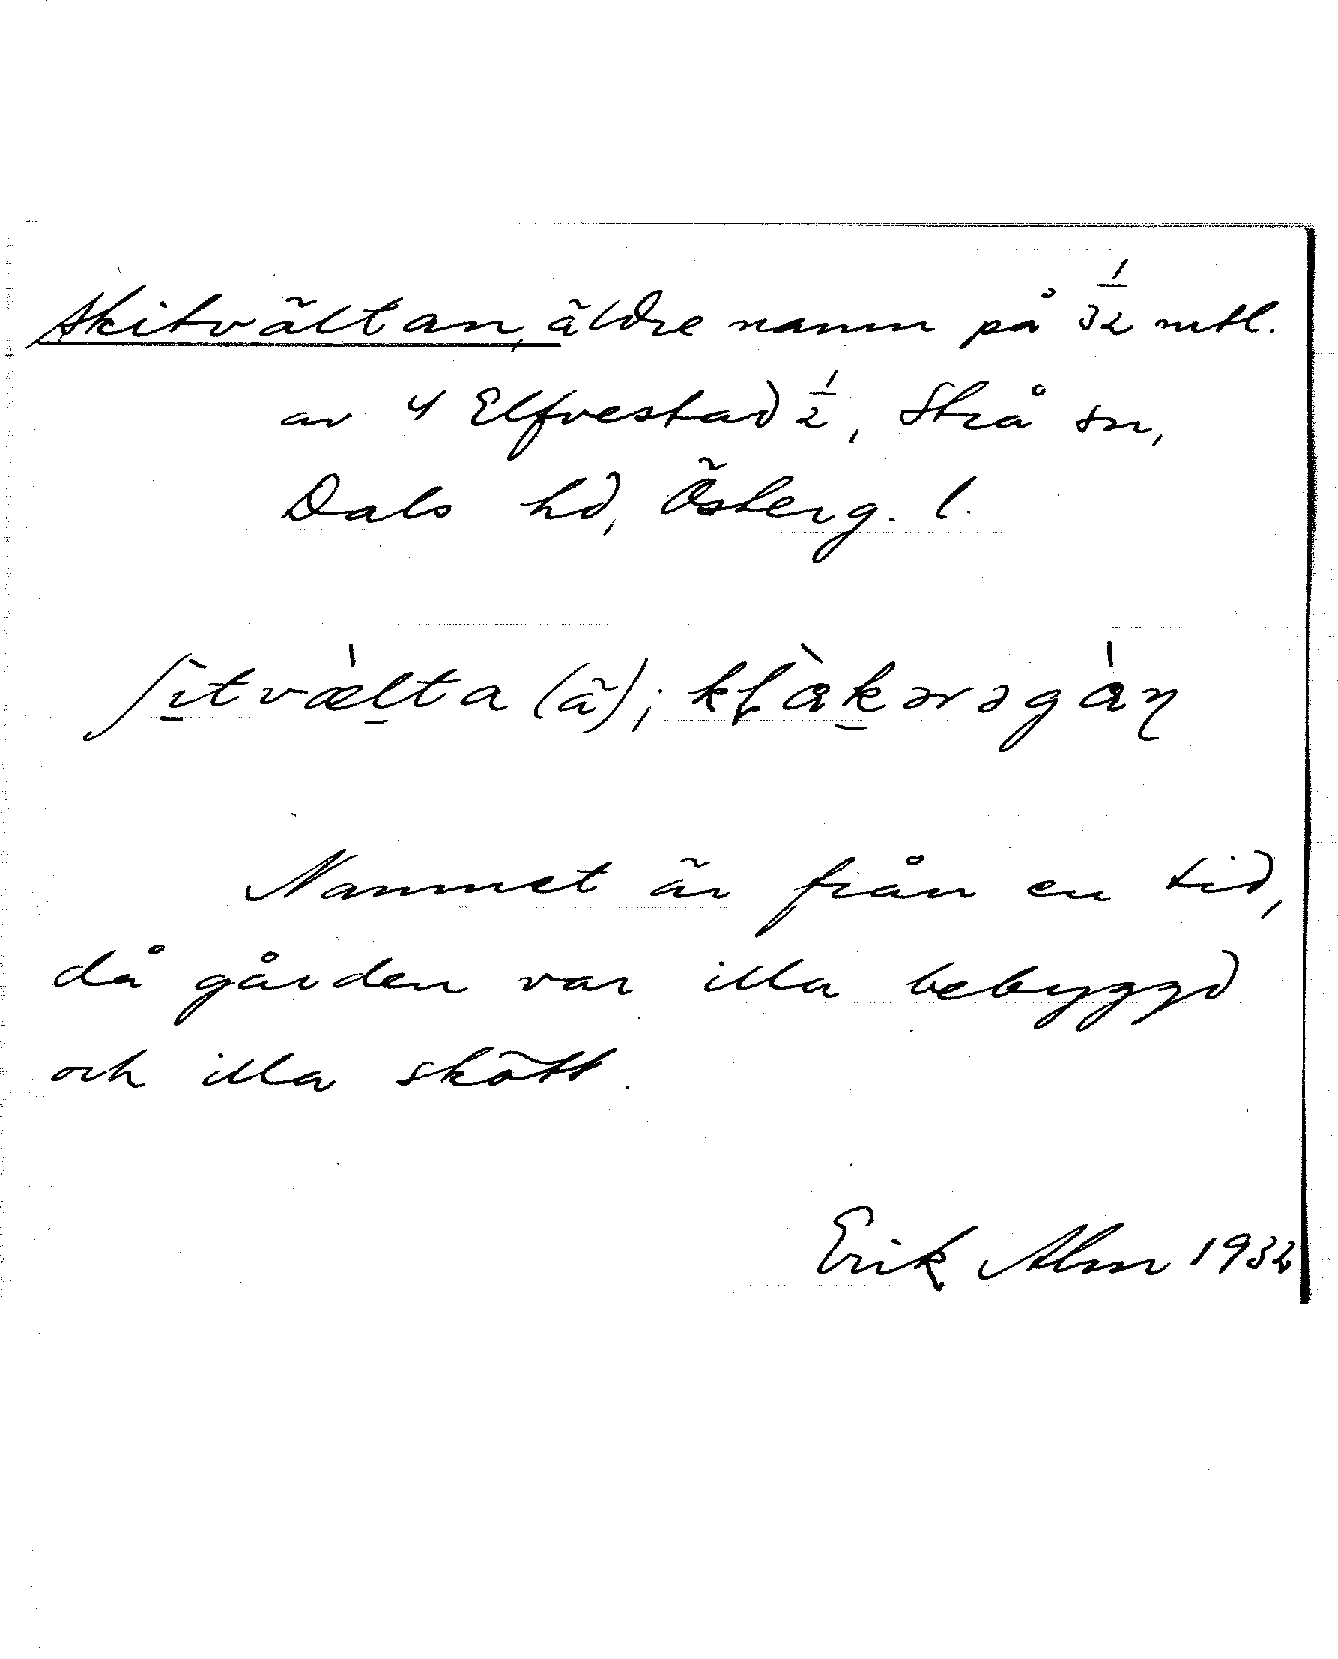 Skitvältan, äldre namn på 1/32 mtl.
av 4 Elfvestad 1/2, Strå sn,
Dals hd, Österg. l.
ʃi̲tvæ̀l̲ta (ã); kḷàk̲ərəgàɳ
Nammet är från en tid,
då gården var illa bebyggd
och illa skött.
Erik Alm 1932